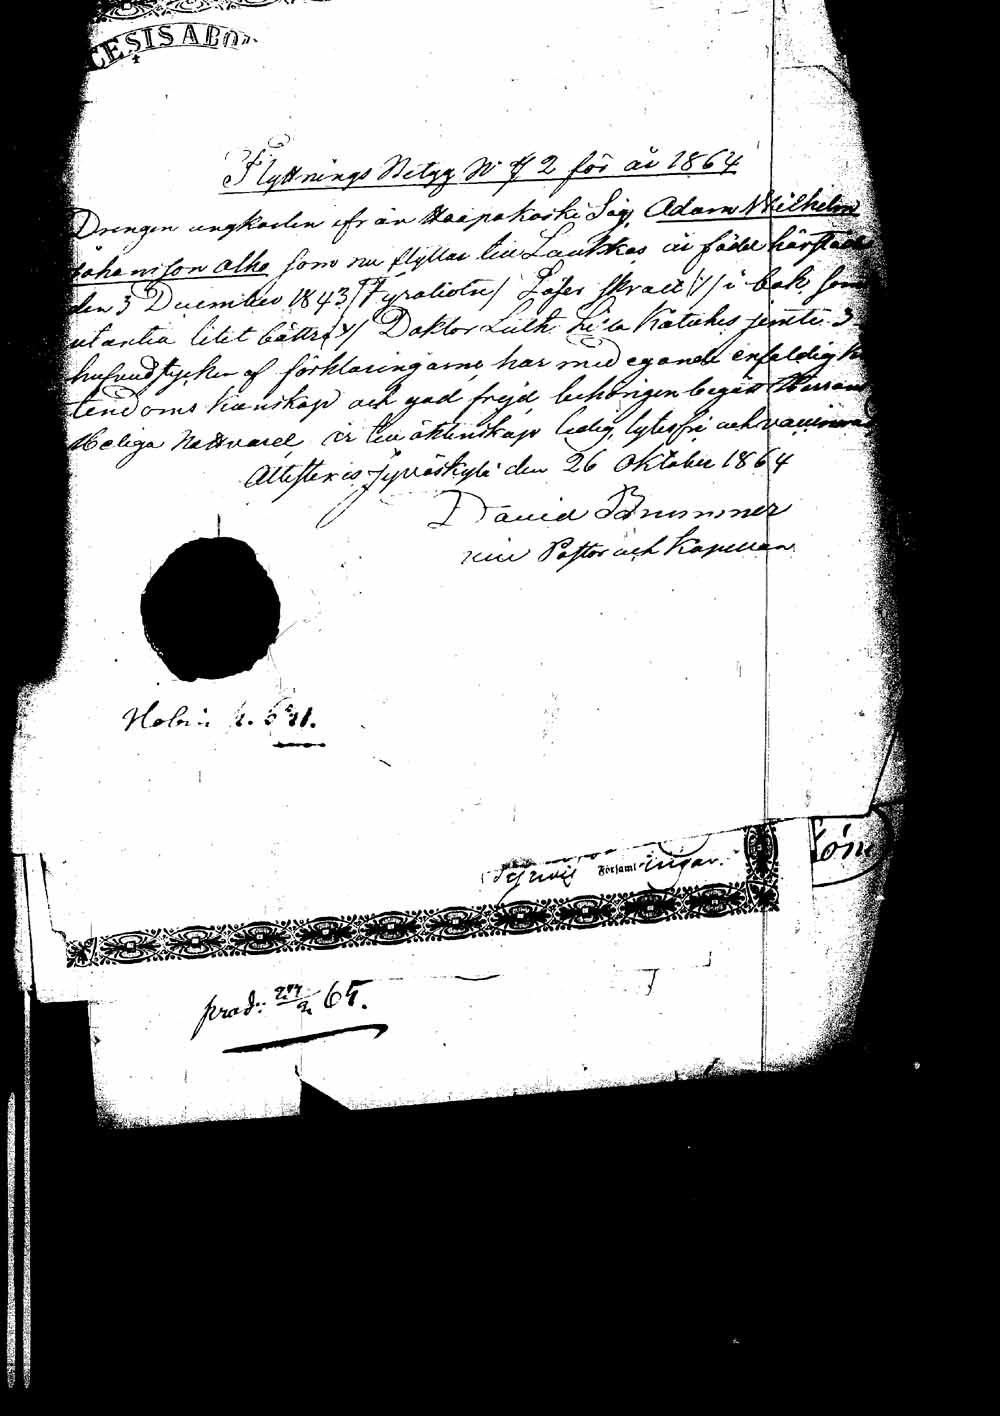 CESIS ABO
Flyttnings Betyg No 72 för år 1864
Drengen ungkarlen ifrån Haapakoski Såg, Adam Wilhelm
Johansson Alho som nu flyttar till Laukkas är född härstädes
den 3 December 1843 / Fyratiotre / Läser svart i bok som
utantill litet bättre Doktor Luth. Lilla Katekes jemte 3
hufvudstycken af förklaringarne, har med egande enfaldig
kunskap och god frejd behörigen begått Herrans
Heliga Nattvard är till äktenskap ledig, lytesfri och vaccinerad
Attesteras Jyväskylä den 26 Oktober 1864
David Brummer
Pastor och Kapellan
Församl ingar.
prod: 65.